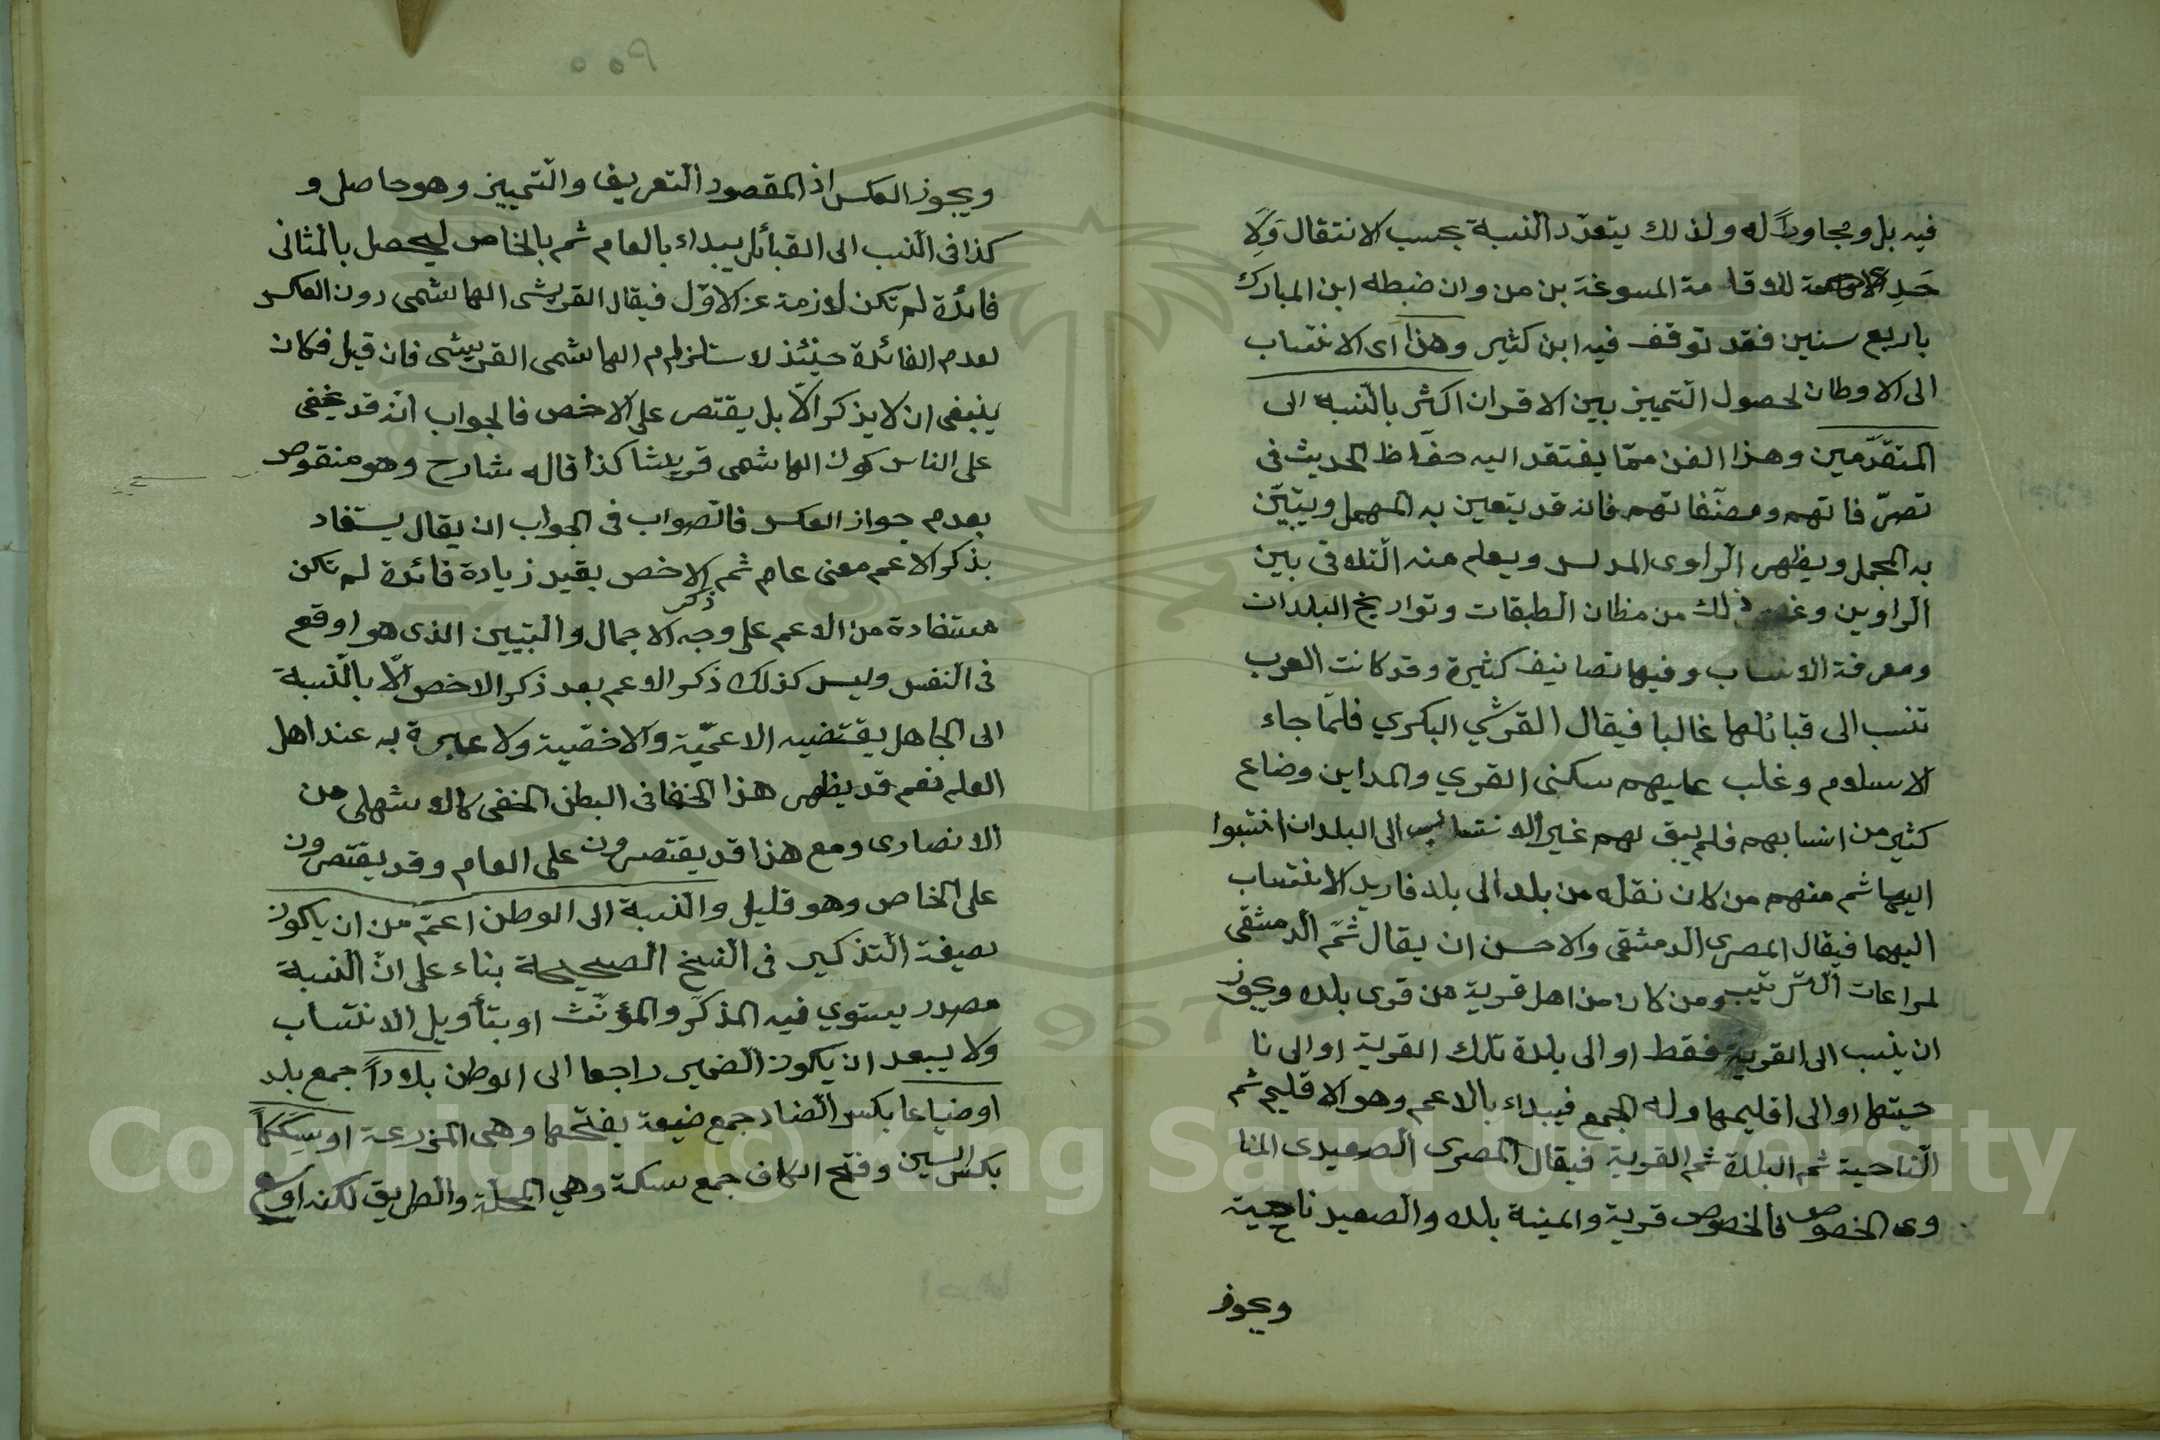 فيه بل ومجاورًا له ولذلك يتعدّد النسبة بحسب الانتقال وَلَا
حَدِ للاقامة المسوغة بن من وان ضبطه ابن المبارك
باربع سنين فقد توقف فيه ابن كثير وهذا اى الانتساب
الى الاوطان لحصول التمييز بين الاقران اكثر بالنسبة الى
المتقدّمين وهذا الفن ممّا يفتقد اليه حفّاظ الحديث فى
تصرّفاتهم ومصنّفاتهم فانه قد يتعين به المهمل ويتبيّن
به المجمل ويظهر الراوى المدلس ويعلم منه التلاقى بين
الراوين وغير ذلك من مظان الطبقات وتواريخ البلدان
ومعرفة الانساب وفيها تصانيف كثيرة وقد كانت العرب
تنسب الى قبائلها غالبا فيقال القرشي البكري فلمّا جاء
الاسلام وغلب عليهم سكنى القري والمداين وضاع
كثير من انسابهم فلم يبق لهم غير الانتساب الى البلدان انتسبوا
اليها ثم منهم من كان نقله من بلد الى بلد فاريد الانتساب
اليهما فيقال المصري الدمشقى والاحسن ان يقال ثمّ الدمشقى
لمراعات الترتيب ومن كان من اهل قرية من قرى بلده ويجوز
ان ينسب الى القرية فقط او الى بلدة تلك القرية او الى نا
حيتها او الى اقليمها وله الجمع فيبداء بالاعم وهو الاقليم ثم
الناحية ثم البلدة ثم القرية فيقال المصرى الصعيدى المنا
وى الخصوص فالخصوص قرية والمينة بلده والصعيد ناحية
ويجوز
ويجوز العكس اذ المقصود التعريف والتمييز وهو حاصل و
كذا فى النسب الى القبائل يبداء بالعام ثم بالخاص ليحصل بالمثانى
فائدة لم تكن لازمة عن الاوّل فيقال القريشى الهاشمى دون العكس
لعدم الفائدة حينئذ لاستلزام الهاشمى القريشى فان قيل فكان
ينبغى ان لا يذكر الّا بل يقتصر على الاخص فالجواب انّه قد يخفى
على الناس كون الهاشمى قريشا كذا قاله شارح وهو منقوص
بعدم جواز العكس فالصواب فى الجواب ان يقال يستفاد
بذكر الاعم معنى عام ثم ذكر الاخص يقيد زيادة فائدة لم تكن
مستفادة من الاعم على وجه الاجمال والتبيين الذى هو اوقع
فى النفس وليس كذلك ذكر الاعم بعد ذكر الاخص الّا بالنسبة
الى الجاهل يقتضيه الاعميّة والاخصّية ولا عبرة به عند اهل
العلم نعم قد يظهر هذا الخفا فى البطن الخفى كالاشهلى من
الانصارى ومع هذا قد يقتصرون على العام وقد يقتصرون
على الخاص وهو قليل والنسبة الى الوطن اعمّ من ان يكون
بصيغة التذكير فى النسخ الصحيحة بناء على انّ النسبة
مصدر يستوي فيه المذكّر والمؤنّث او بتأويل الانتساب
ولا يبعد ان يكون الضمير راجعا الى الوطن بلادًا جمع بلد
او ضياعا بكسر الضاد جمع ضيعة بفتحها وهى المزرعة او سِكَكًا
بكسر السين وفتح الكاف جمع سكة وهي المحلّة والطريق لكنه اوسع